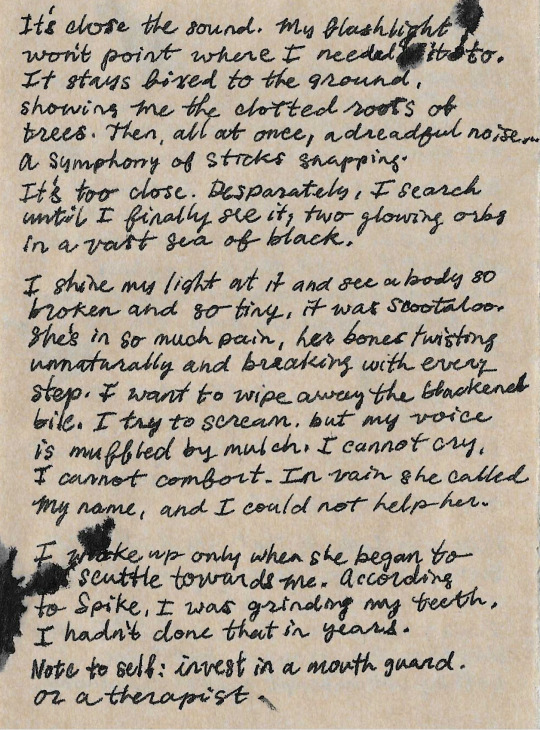 It's close the sound. My flashlight
won't point where I needed it to.
It stays fixed to the ground,
showing me the clotted roots of
trees. Then, all at once, a dreadful noise...
a symphony of sticks snapping.
It's too close. Desparately, I search
until I finally see it; two glowing orbs
in a vast sea of black.
I shine my light at it and see a body so
broken and so tiny, it was Scootaloo.
She's in so much pain, her bones twisting
unnaturally and breaking with every
step. I want to wipe away the blackened
bile. I try to scream. but my voice
is muffled by mulch. I cannot cry,
I cannot comfort. In vain she called
my name, and I could not help her.
I woke up only when she began to
scuttle towards me. According
to Spike, I was grinding my teeth.
I hadn't done that in years.
Note to self: invest in a mouth guard.
or a therapist.